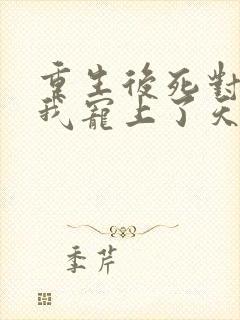 重生後死對
我寵上了天
季芹